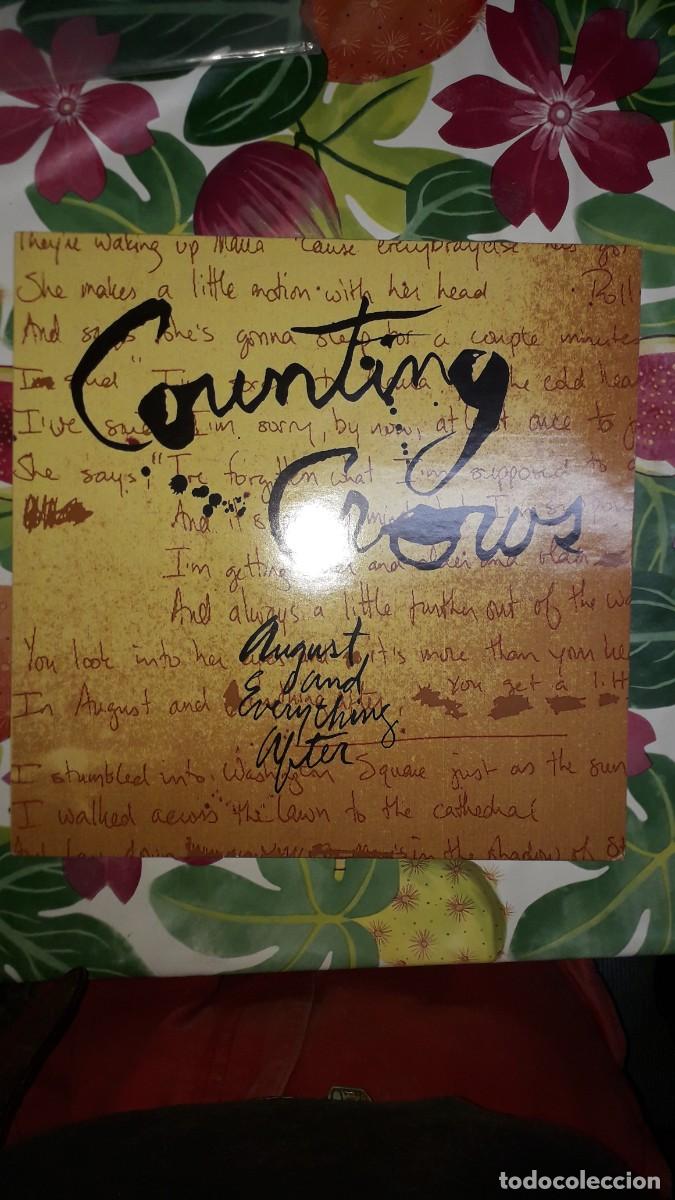 They're waking up Maria 'cause everybody else has go
She makes a little motion with her head Roll
And says she's gonna sleep for a couple minutes
Counting
I'm sorry the cold hea
I've said I'm sorry, by now, at least once to
She says, "I've forgotten what I'm supposed to
Crows
And it's
I'm getting and older and
And always a little further out of the wa
You look into her it's more than your he
August
and
Everything
After
In August and You get a litt
I stumbled into Washington Square just as the sun
I walked across the lawn to the cathedral
And lay down in the shadow of St
todocoleccion